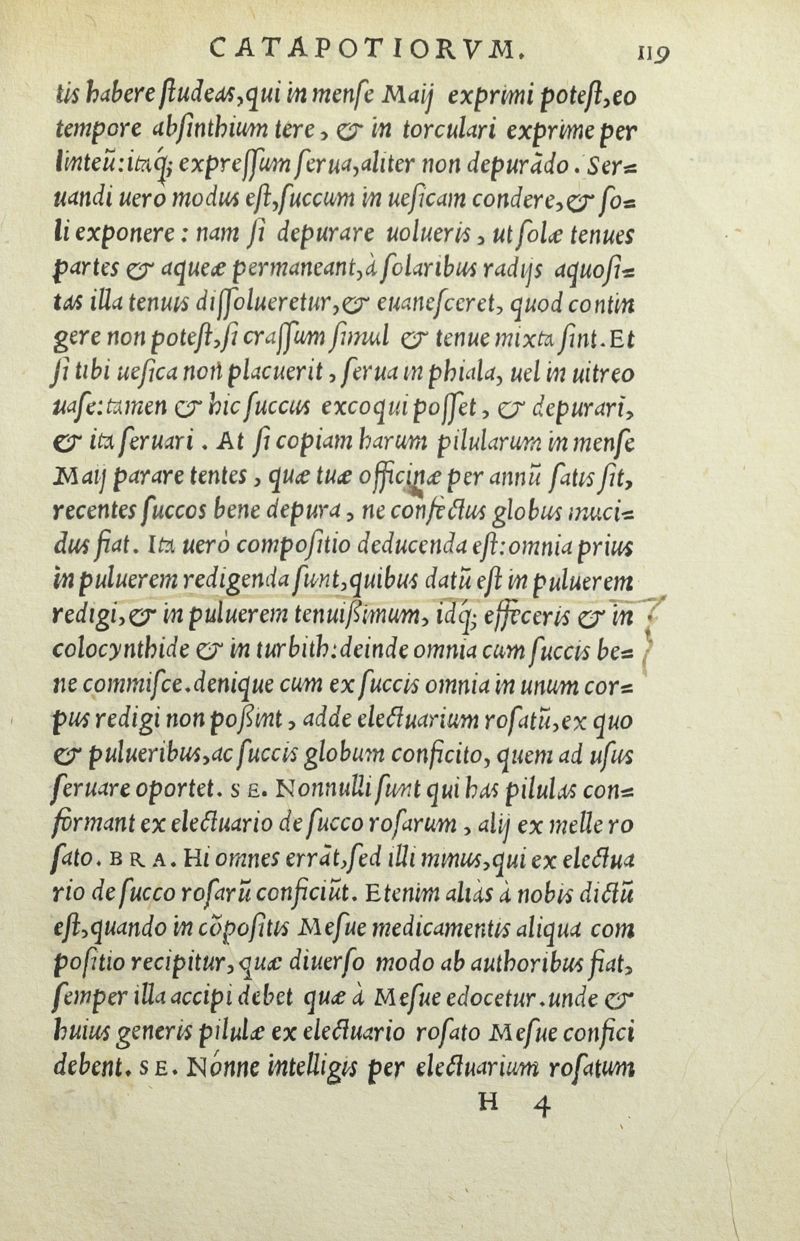 CATAPOTIORVM. 119
tis habere ſtudeas, qui in menſe Maij exprimi poteſt, eo
tempore abſinthium tere, & in torculari exprime per
linteũ: itaq; expreſſum ſerua, aliter non depurãdo. Ser=
uandi uero modus eſt, ſuccum in ueſicam condere, & ſo=
li exponere: nam ſi depurare uolueris, ut ſolæ tenues
partes & aqueæ permaneant, à ſolaribus radijs aquoſi=
tas illa tenuis diſſolueretur, & euaneſceret, quod contin
gere non poteſt, ſi craſſum ſimul & tenue mixta ſint. Et
ſi tibi ueſica non placuerit, ſerua in phiala, uel in uitreo
uaſe: tamen & hic ſuccus excoqui poſſet, & depurari,
& ita ſeruari. At ſi copiam harum pilularum in menſe
Maij parare tentes, quæ tuæ officinæ per annũ ſatis ſit,
recentes ſuccos bene depura, ne confectus globus muci=
dus fiat. Ita uerò compoſitio deducenda eſt: omnia prius
in puluerem redigenda ſunt, quibus datũ eſt in puluerem
redigi, & in puluerem tenuißimum, idq; effeceris & in
colocynthide & in turbith: deinde omnia cum ſuccis be=
ne commiſce. denique cum ex ſuccis omnia in unum cor=
pus redigi non poßint, adde electuarium roſatũ, ex quo
& pulueribus, ac ſuccis globum conficito, quem ad uſus
ſeruare oportet. SE. Nonnulli ſunt qui has pilulas con=
formant ex electuario de ſucco roſarum, alij ex melle ro
ſato. BRA. Hi omnes errãt, ſed illi minus, qui ex electua
rio de ſucco roſarũ conficiũt. Etenim aliàs à nobis dictũ
eſt, quando in cõpoſitis Meſue medicamentis aliqua com
poſitio recipitur, quæ diuerſo modo ab authoribus fiat,
ſemper illa accipi debet quæ à Meſue edocetur. unde &
huius generis pilulæ ex electuario roſato Meſue confici
debent. SE. Nónne intelligis per electuarium roſatum
H 4